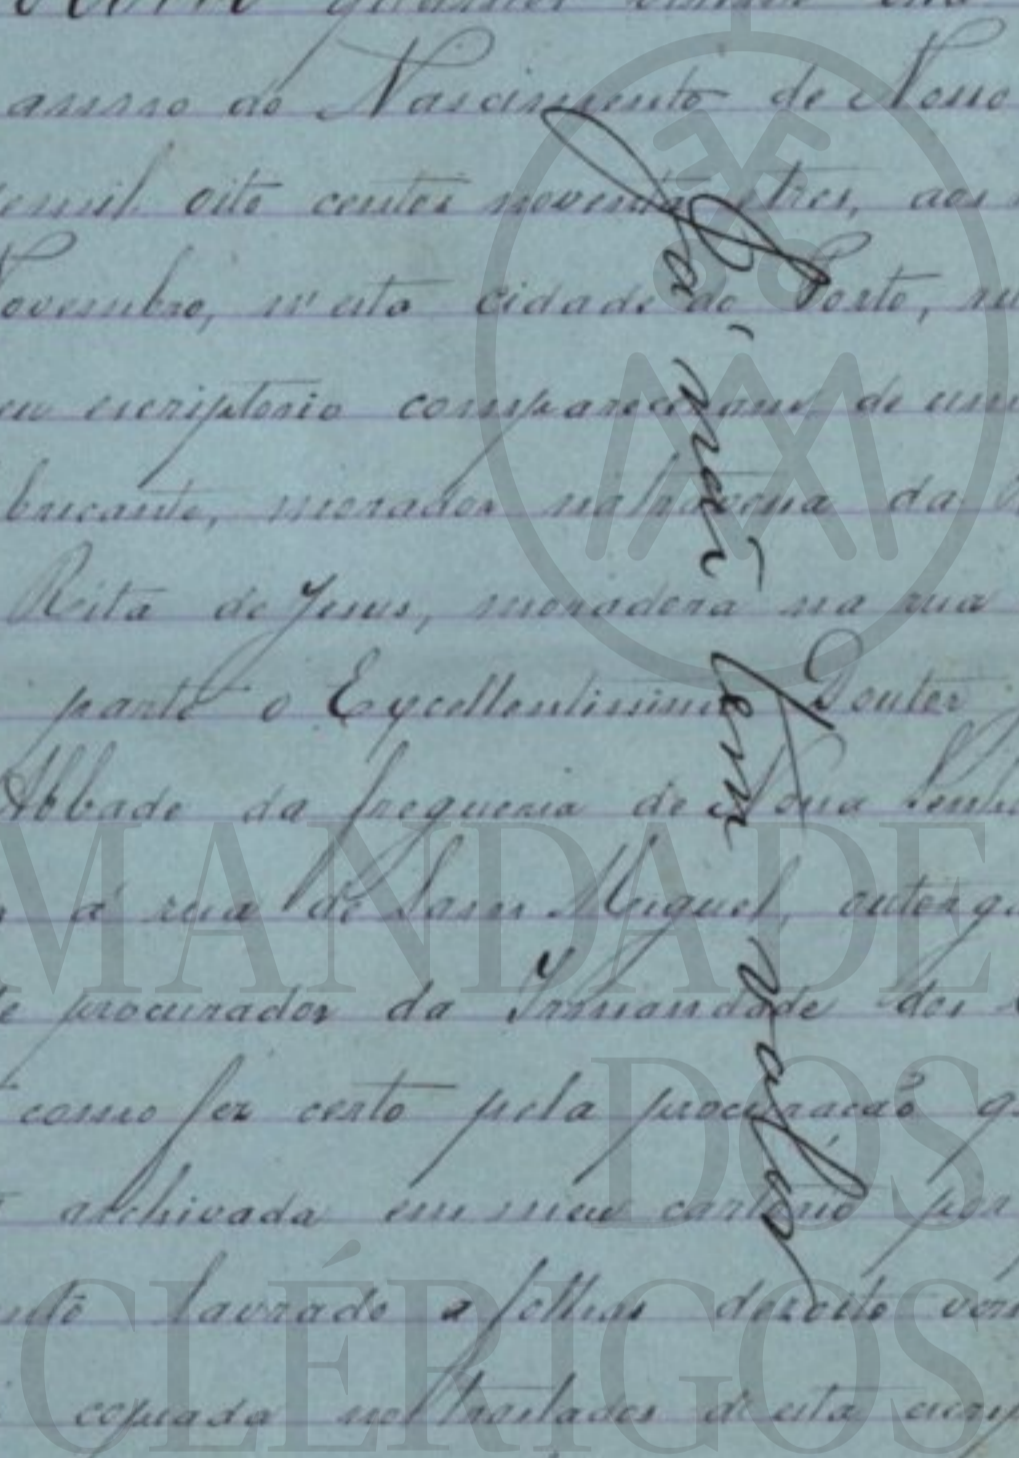 quantos
anno do Nascimento de Nosso
mil oito centos noventa e tres, aos
Novembro, n'esta cidade do Porto,
escriptorio compareceram de uma
bricante, morador na travessa da
Rita de Jesus, moradora na rua
parte o Excellentissimo Doutor
Abbade da freguesia de Nossa Senho
á rua de Sam Miguel, outorga
procurador da Irmandade dos
como fez certo pela procuração
archivada em meu cartorio por
lavrado a folhas desoito vers
copiada nos traslados d'esta escrip
Já não tem valor
MANDADE
DOS
CLÉRIGOS